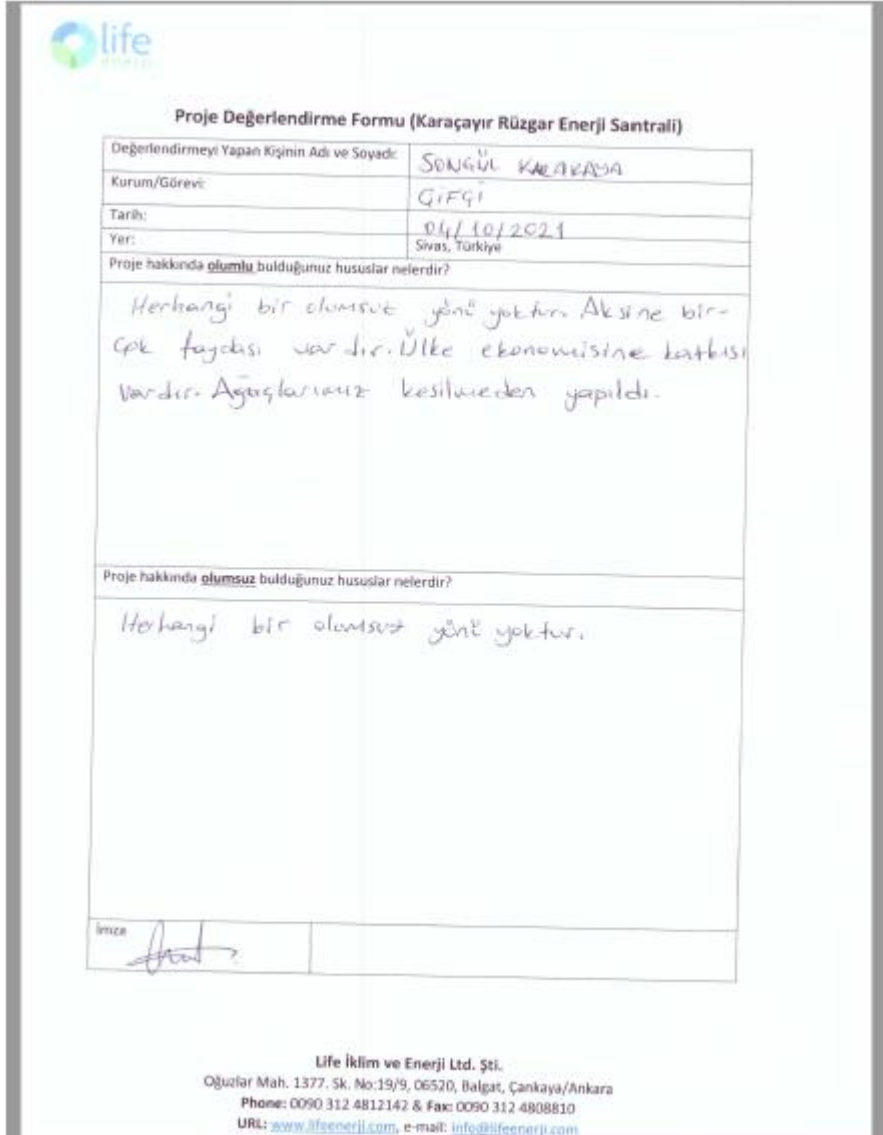 life
enerji
Proje Değerlendirme Formu (Karaçayır Rüzgar Enerji Santrali)
Değerlendirmeyi Yapan Kişinin Adı ve Soyadı: SONGÜL KARAKAYA
Kurum/Görevi: ÇİFÇİ
Tarih: 04/10/2021
Yer: Sivas, Türkiye
Proje hakkında olumlu bulduğunuz hususlar nelerdir?
Herhangi bir olumsuz yönü yoktur. Aksine bir-
çok faydası vardır. Ülke ekonomisine katkısı
vardır. Ağaçlarımız kesilmeden yapıldı.
Proje hakkında olumsuz bulduğunuz hususlar nelerdir?
Herhangi bir olumsuz yönü yoktur.
İmza
Life İklim ve Enerji Ltd. Şti.
Oğuzlar Mah. 1377. Sk. No:19/9, 06520, Balgat, Çankaya/Ankara
Phone: 0090 312 4812142 & Fax: 0090 312 4808810
URL: www.lifeenerji.com, e-mail: info@lifeenerji.com